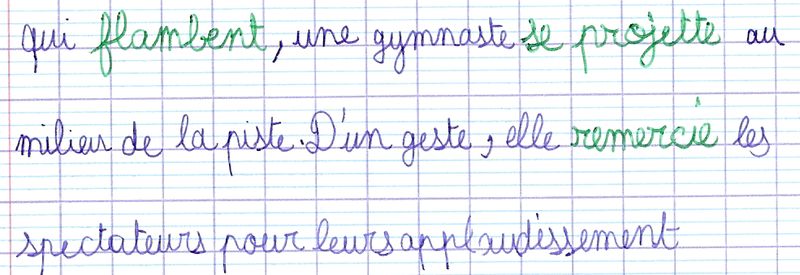 qui flambent, une gymnaste se projette au
milieu de la piste. D'un geste, elle remercie les
spectateurs pour leurs applaudissement